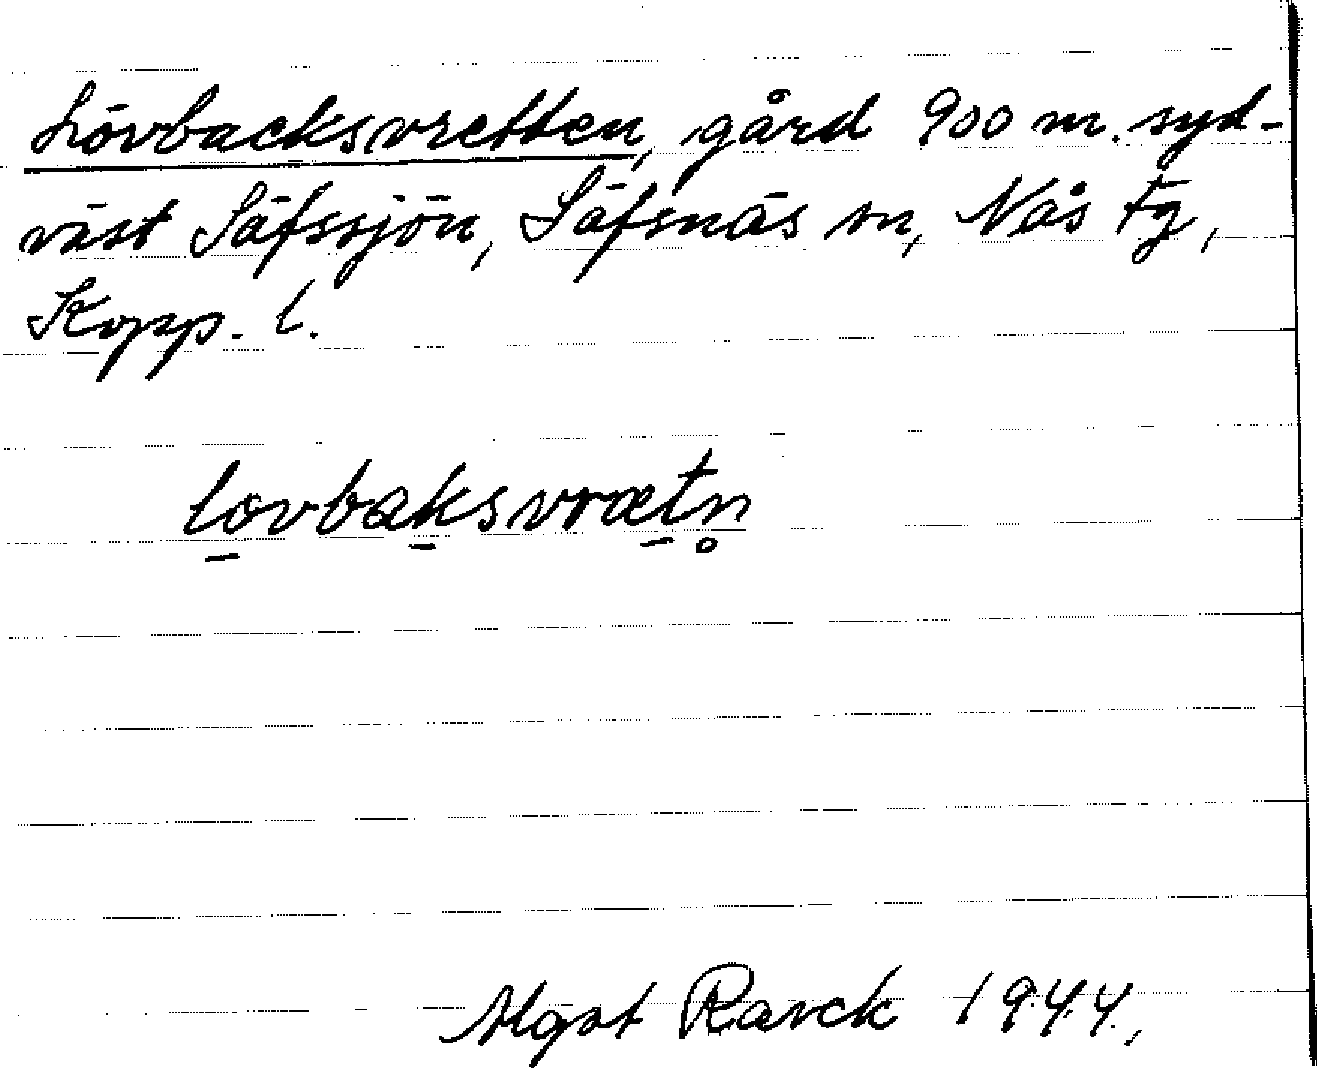 Lövbacksvretten, gård 900 m. syd-
väst Säfssjön, Säfsnäs sn, Nås tg,
Kopp. l.
lovbaksvrætn̥
Mgat Rarck 1944,